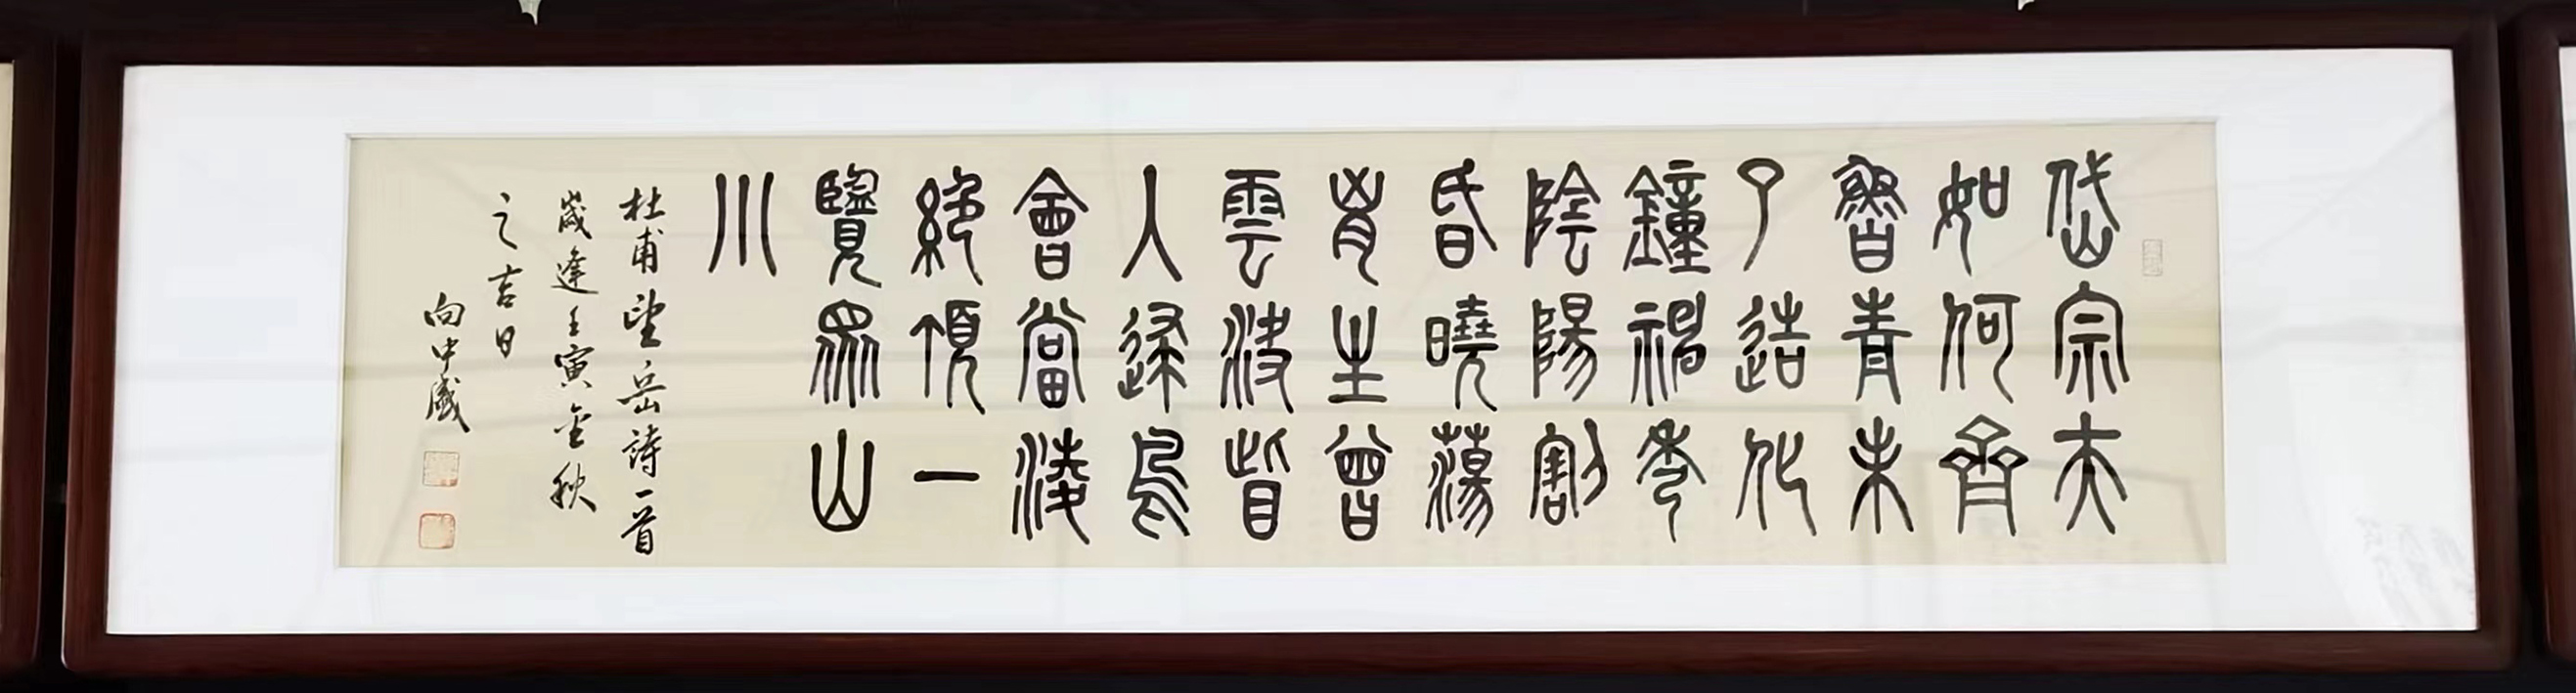 岱宗夫
如何齊
魯青未
了造化
鐘神秀
陰陽割
昏曉蕩
胷生曾
雲決眥
入歸鳥
會當淩
絕頂一
覽眾山
小
杜甫望岳詩一首
歲逢壬寅金秋
之吉日
向中盛